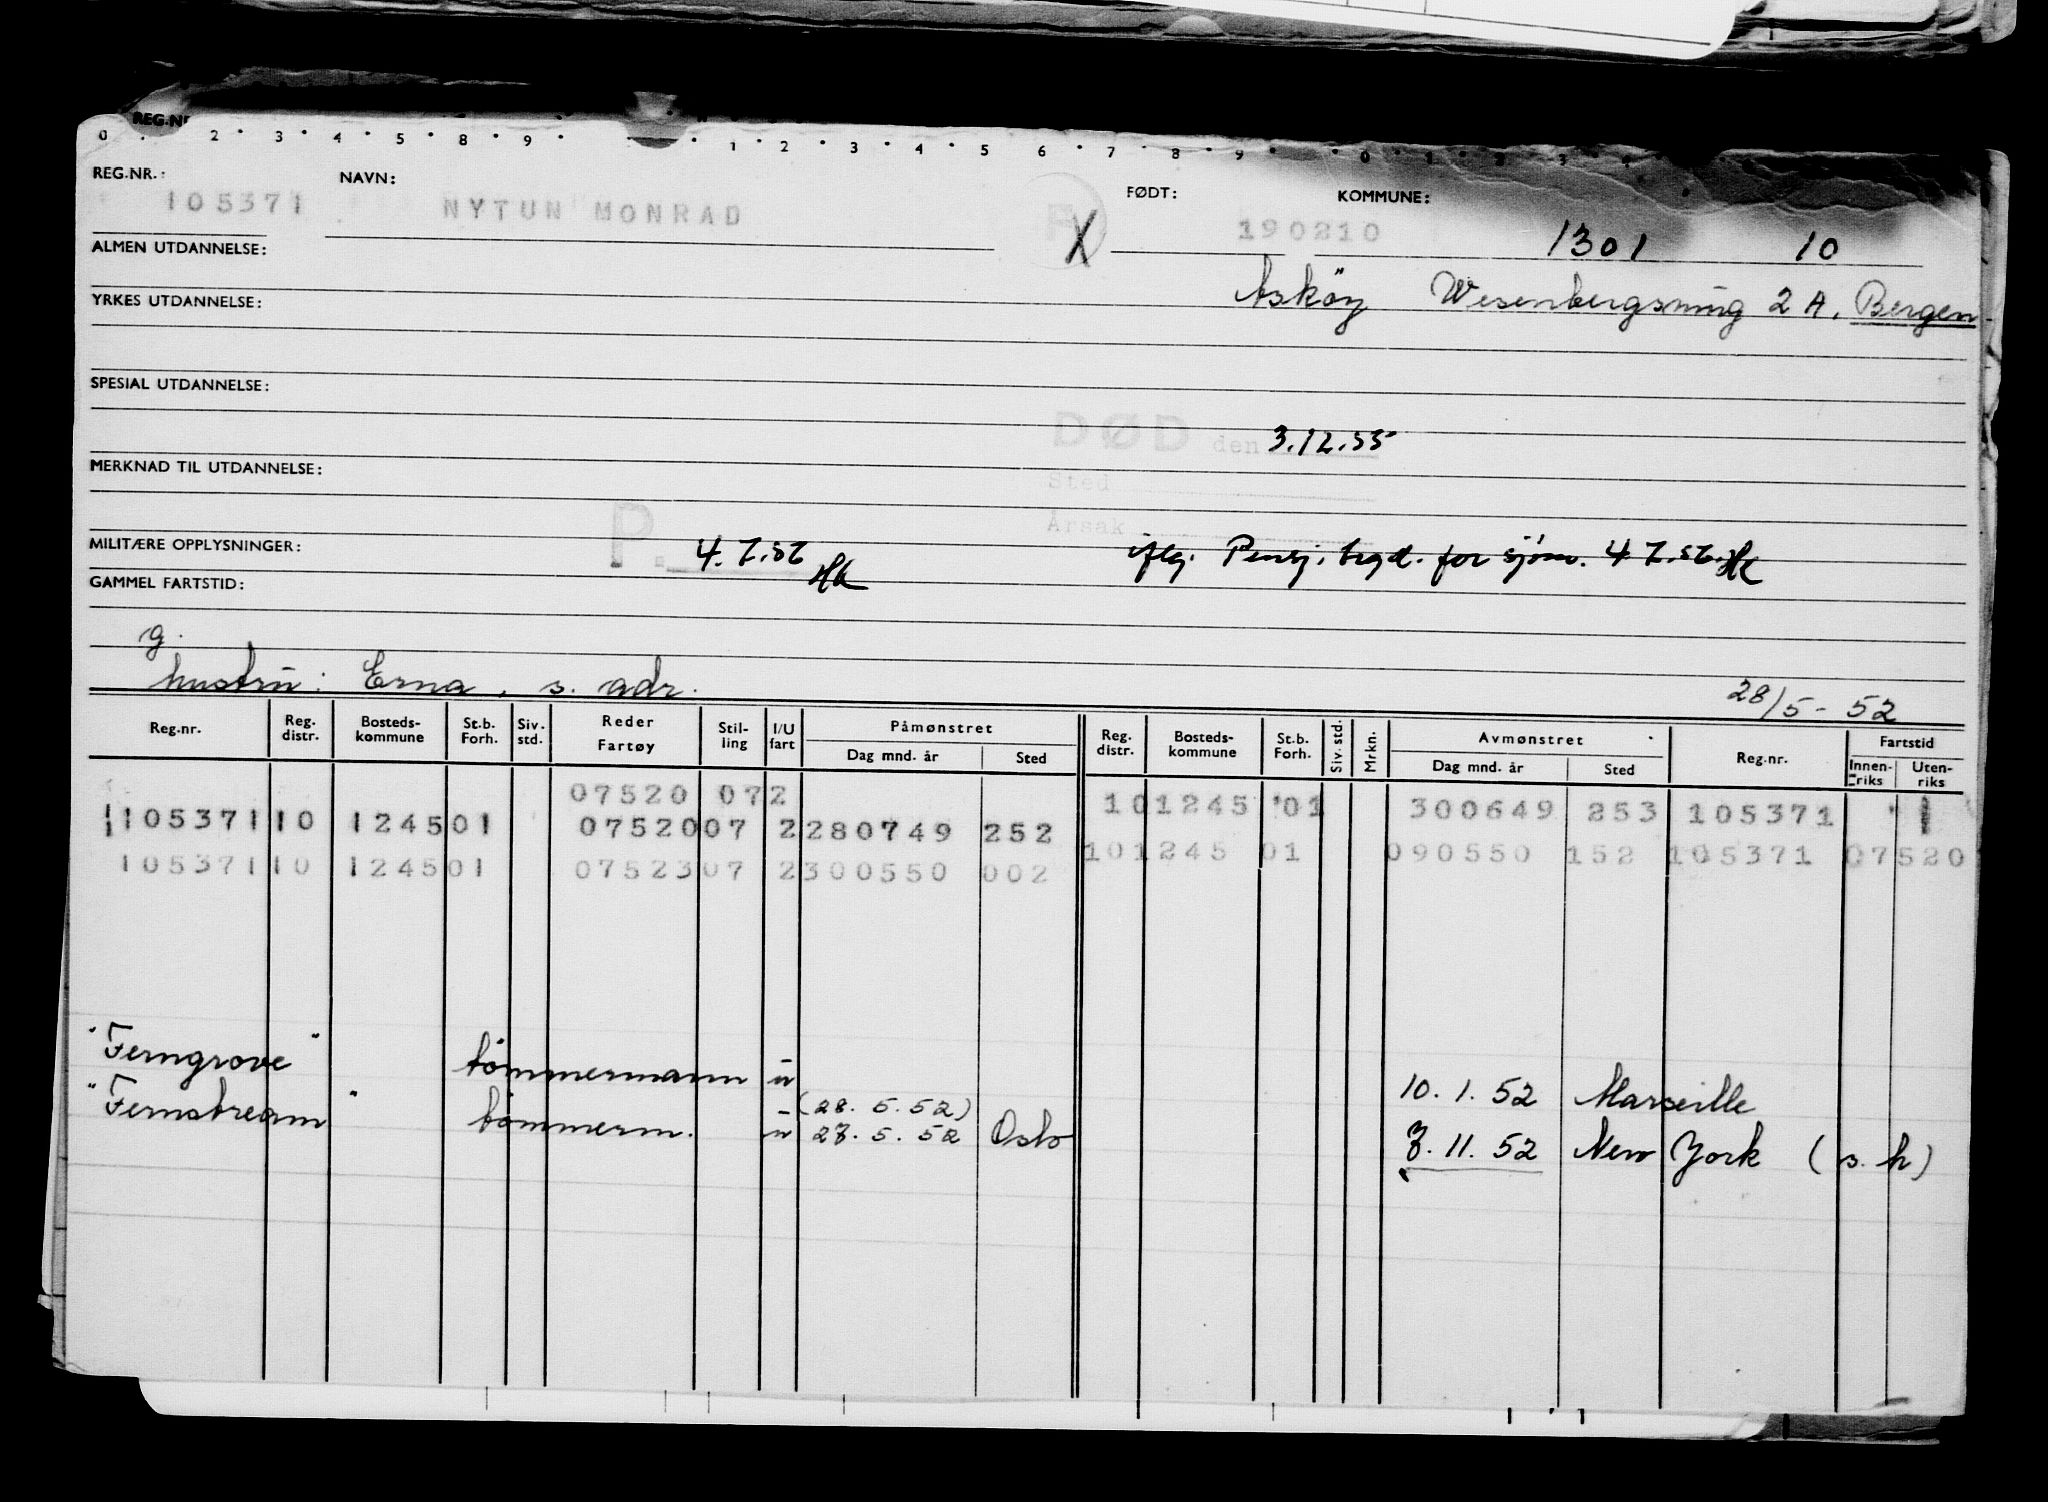 REG.NR
0 2 3 4 5 8 9 1 2 3 4 5 6 7 8 9 0 1 2 3 4
REG.NR.: NAVN: FØDT: KOMMUNE:
105371 NYTUN MONRAD 190210 1301 10
ALMEN UTDANNELSE:
Asköy Wesenbergsmug 2 A, Bergen.
YRKES UTDANNELSE:
SPESIAL UTDANNELSE:
DØD den 3.12.55
MERKNAD TIL UTDANNELSE:
Sted
P. Årsak
MILITÆRE OPPLYSNINGER: 4.7.56 iflg. Pensj. trgd. for sjøm. 4.7.56. HK
HK
GAMMEL FARTSTID:
g.
hustru: Erna, s. adr. 28/5-52
Reg.nr. Reg. distr. Bosteds-kommune St.b. Forh. Siv. std. Reder Fartøy Stil-ling I/U fart Påmønstret Dag mnd. år Sted Reg. distr. Bosteds-kommune St.b. Forh. Siv. std. Mrkn. Avmønstret Dag mnd. år Sted Reg.nr. Fartstid Innen-riks Uten-riks
07520 072 101245 01 300649 253 105371
105371 10 1245 01 07520 07 2 280749 252 101245 01 090550 152 105371 07520
105371 10 1245 01 07523 07 2 300550 002
"Ferngrove" tömmermann u 10.1.52 Marseille
(28.5.52)
"Fernstream" tömmerm. u 27.5.52 Oslo 7.11.52 New York (s.h)